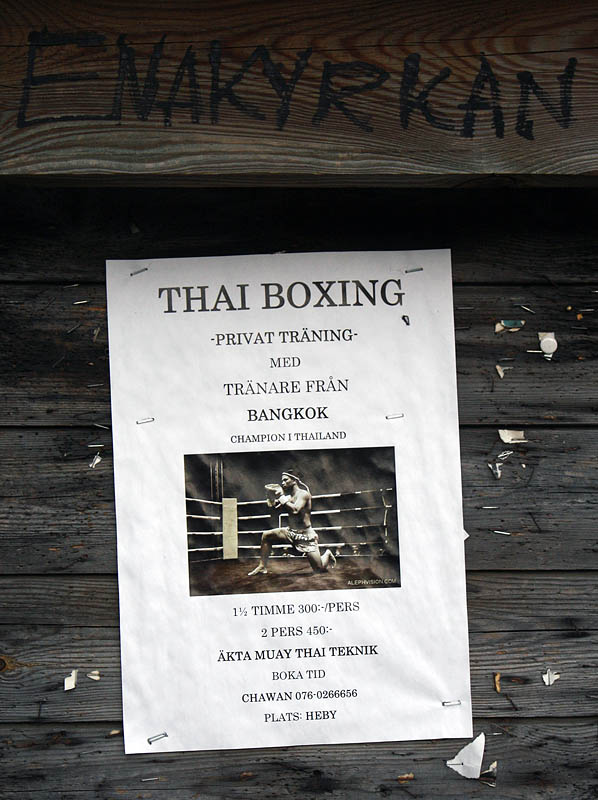 ENAKYRKAN
THAI BOXING
-PRIVAT TRÄNING-
MED
TRÄNARE FRÅN
BANGKOK
CHAMPION I THAILAND
ALEPHVISION.COM
1½ TIMME 300:-/PERS
2 PERS 450:-
ÄKTA MUAY THAI TEKNIK
BOKA TID
CHAWAN 076-0266656
PLATS: HEBY